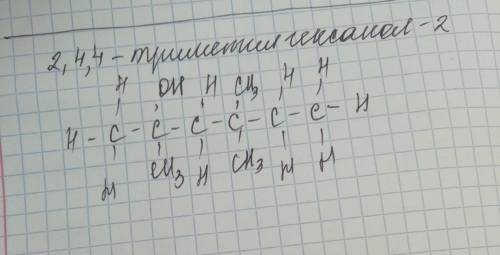 2,4,4-триметилгексанол-2
H OH H CH3 H H
H - C - C - C - C - C - C - H
H CH3 H CH3 H H